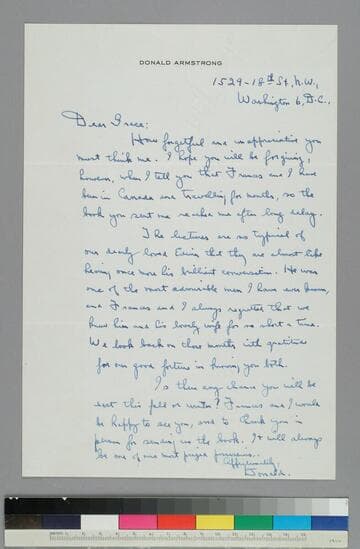 DONALD ARMSTRONG
1529-18th St, N.W.,
Washington 6, D.C.,
Dear Grace:
How forgetful and unappreciative you
must think me. I hope you will be forgiving,
however, when I tell you that Frances and I have
been in Canada and travelling for months, so the
book you sent me reaches me after long delay.
The lectures are so typical of
our dearly loved Edwin that they are almost like
having once more his brilliant conversation. He was
one of the most admirable men I have ever known,
and Frances and I always regretted that we
knew him and his lovely wife for so short a time.
We look back on those months with gratitude
for our good fortune in knowing you both.
Is there any chance you will be
east this fall or winter? Frances and I would
be happy to see you, and to thank you in
person for sending us the book. It will always
be one of our most prized possessions.
Affectionately,
Donald.